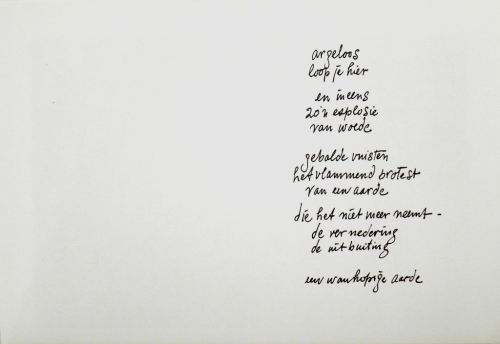 argeloos
loop je hier
en ineens
zo'n explosie
van woede
gebalde vuisten
het vlammend protest
van een aarde
die het niet meer neemt -
de vernedering
de uitbuiting
een wanhopige aarde